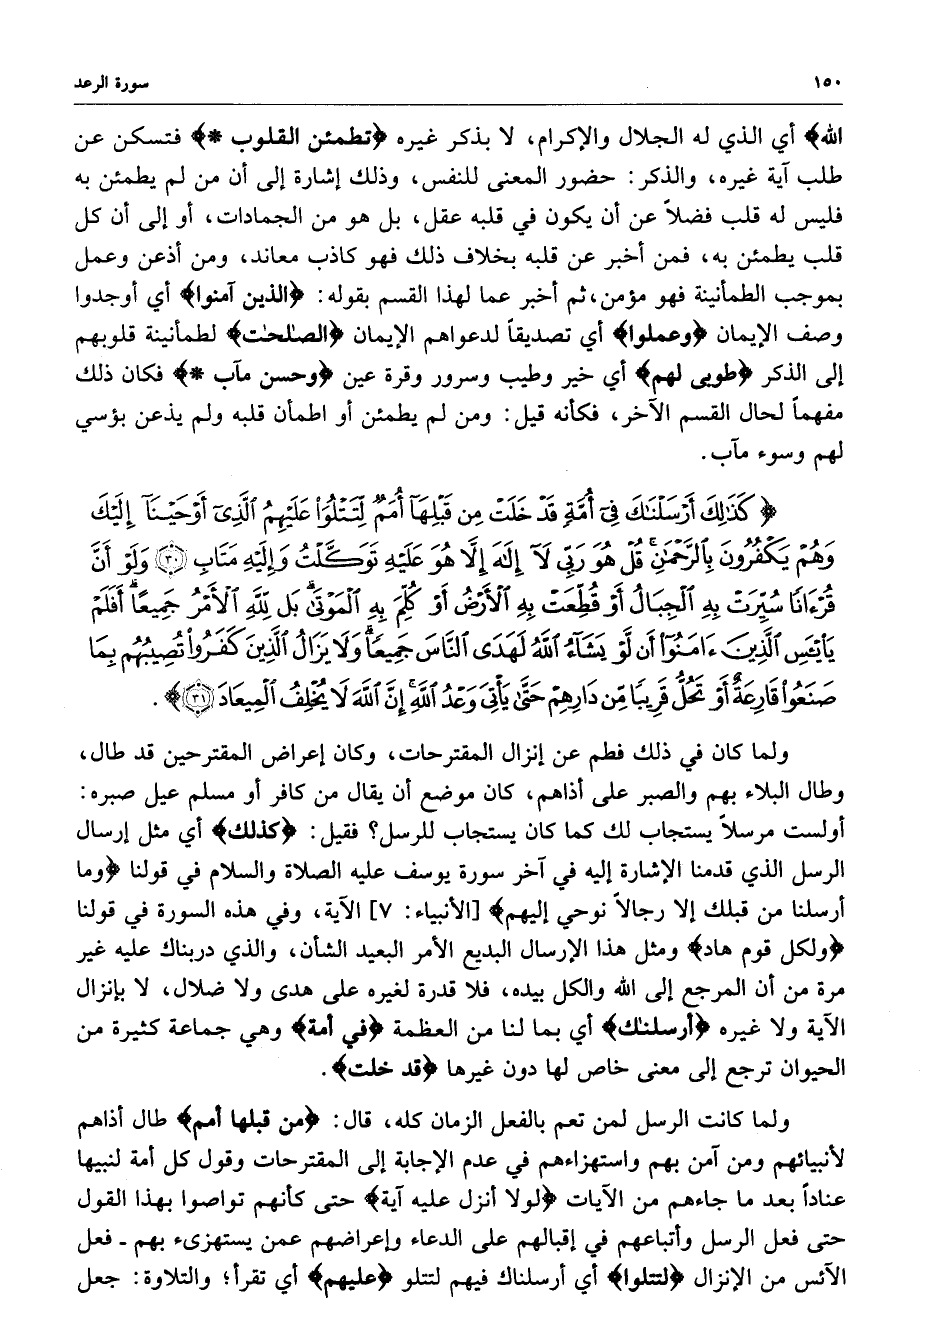 ١٥٠ سورة الرعد
الله﴾ أي الذي له الجلال والإكرام، لا بذكر غيره ﴿تطمئن القلوب *﴾ فتسكن عن
طلب آية غيره، والذكر: حضور المعنى للنفس، وذلك إشارة إلى أن من لم يطمئن به
فليس له قلب فضلاً عن أن يكون في قلبه عقل، بل هو من الجمادات، أو إلى أن كل
قلب يطمئن به، فمن أخبر عن قلبه بخلاف ذلك فهو كاذب معاند، ومن أذعن وعمل
بموجب الطمأنينة فهو مؤمن، ثم أخبر عما لهذا القسم بقوله: ﴿الذين آمنوا﴾ أي أوجدوا
وصف الإيمان ﴿وعملوا﴾ أي تصديقاً لدعواهم الإيمان ﴿الصٰلحٰت﴾ لطمأنينة قلوبهم
إلى الذكر ﴿طوبى لهم﴾ أي خير وطيب وسرور وقرة عين ﴿وحسن مآب *﴾ فكان ذلك
مفهماً لحال القسم الآخر، فكأنه قيل: ومن لم يطمئن أو اطمأن قلبه ولم يذعن بؤسي
لهم وسوء مآب.
﴿ كَذَٰلِكَ أَرْسَلْنَٰكَ فِىٓ أُمَّةٍ قَدْ خَلَتْ مِن قَبْلِهَآ أُمَمٌ لِّتَتْلُوَا۟ عَلَيْهِمُ ٱلَّذِىٓ أَوْحَيْنَآ إِلَيْكَ
وَهُمْ يَكْفُرُونَ بِٱلرَّحْمَٰنِ ۚ قُلْ هُوَ رَبِّى لَآ إِلَٰهَ إِلَّا هُوَ عَلَيْهِ تَوَكَّلْتُ وَإِلَيْهِ مَتَابِ ٣٠ وَلَوْ أَنَّ
قُرْءَانًا سُيِّرَتْ بِهِ ٱلْجِبَالُ أَوْ قُطِّعَتْ بِهِ ٱلْأَرْضُ أَوْ كُلِّمَ بِهِ ٱلْمَوْتَىٰ ۗ بَل لِّلَّهِ ٱلْأَمْرُ جَمِيعًا ۗ أَفَلَمْ
يَا۟يْـَٔسِ ٱلَّذِينَ ءَامَنُوٓا۟ أَن لَّوْ يَشَآءُ ٱللَّهُ لَهَدَى ٱلنَّاسَ جَمِيعًا ۗ وَلَا يَزَالُ ٱلَّذِينَ كَفَرُوا۟ تُصِيبُهُم بِمَا
صَنَعُوا۟ قَارِعَةٌ أَوْ تَحُلُّ قَرِيبًا مِّن دَارِهِمْ حَتَّىٰ يَأْتِىَ وَعْدُ ٱللَّهِ ۚ إِنَّ ٱللَّهَ لَا يُخْلِفُ ٱلْمِيعَادَ ٣١﴾.
ولما كان في ذلك فطم عن إنزال المقترحات، وكان إعراض المقترحين قد طال،
وطال البلاء بهم والصبر على أذاهم، كان موضع أن يقال من كافر أو مسلم عيل صبره:
أولست مرسلاً يستجاب لك كما كان يستجاب للرسل؟ فقيل: ﴿كذلك﴾ أي مثل إرسال
الرسل الذي قدمنا الإشارة إليه في آخر سورة يوسف عليه الصلاة والسلام في قولنا ﴿وما
أرسلنا من قبلك إلا رجالاً نوحي إليهم﴾ [الأنبياء: ٧] الآية، وفي هذه السورة في قولنا
﴿ولكل قوم هاد﴾ ومثل هذا الإرسال البديع الأمر البعيد الشأن، والذي دربناك عليه غير
مرة من أن المرجع إلى الله والكل بيده، فلا قدرة لغيره على هدى ولا ضلال، لا بإنزال
الآية ولا غيره ﴿أرسلنٰك﴾ أي بما لنا من العظمة ﴿في أمة﴾ وهي جماعة كثيرة من
الحيوان ترجع إلى معنى خاص لها دون غيرها ﴿قد خلت﴾.
ولما كانت الرسل لمن تعم بالفعل الزمان كله، قال: ﴿من قبلها أمم﴾ طال أذاهم
لأنبيائهم ومن آمن بهم واستهزاءهم في عدم الإجابة إلى المقترحات وقول كل أمة لنبيها
عناداً بعد ما جاءهم من الآيات ﴿لولا أنزل عليه آية﴾ حتى كأنهم تواصوا بهذا القول
حتى فعل الرسل وأتباعهم في إقبالهم على الدعاء وإعراضهم عمن يستهزىء بهم - فعل
الآئس من الإنزال ﴿لتتلوا﴾ أي أرسلناك فيهم لتتلو ﴿عليهم﴾ أي تقرأ؛ والتلاوة: جعل